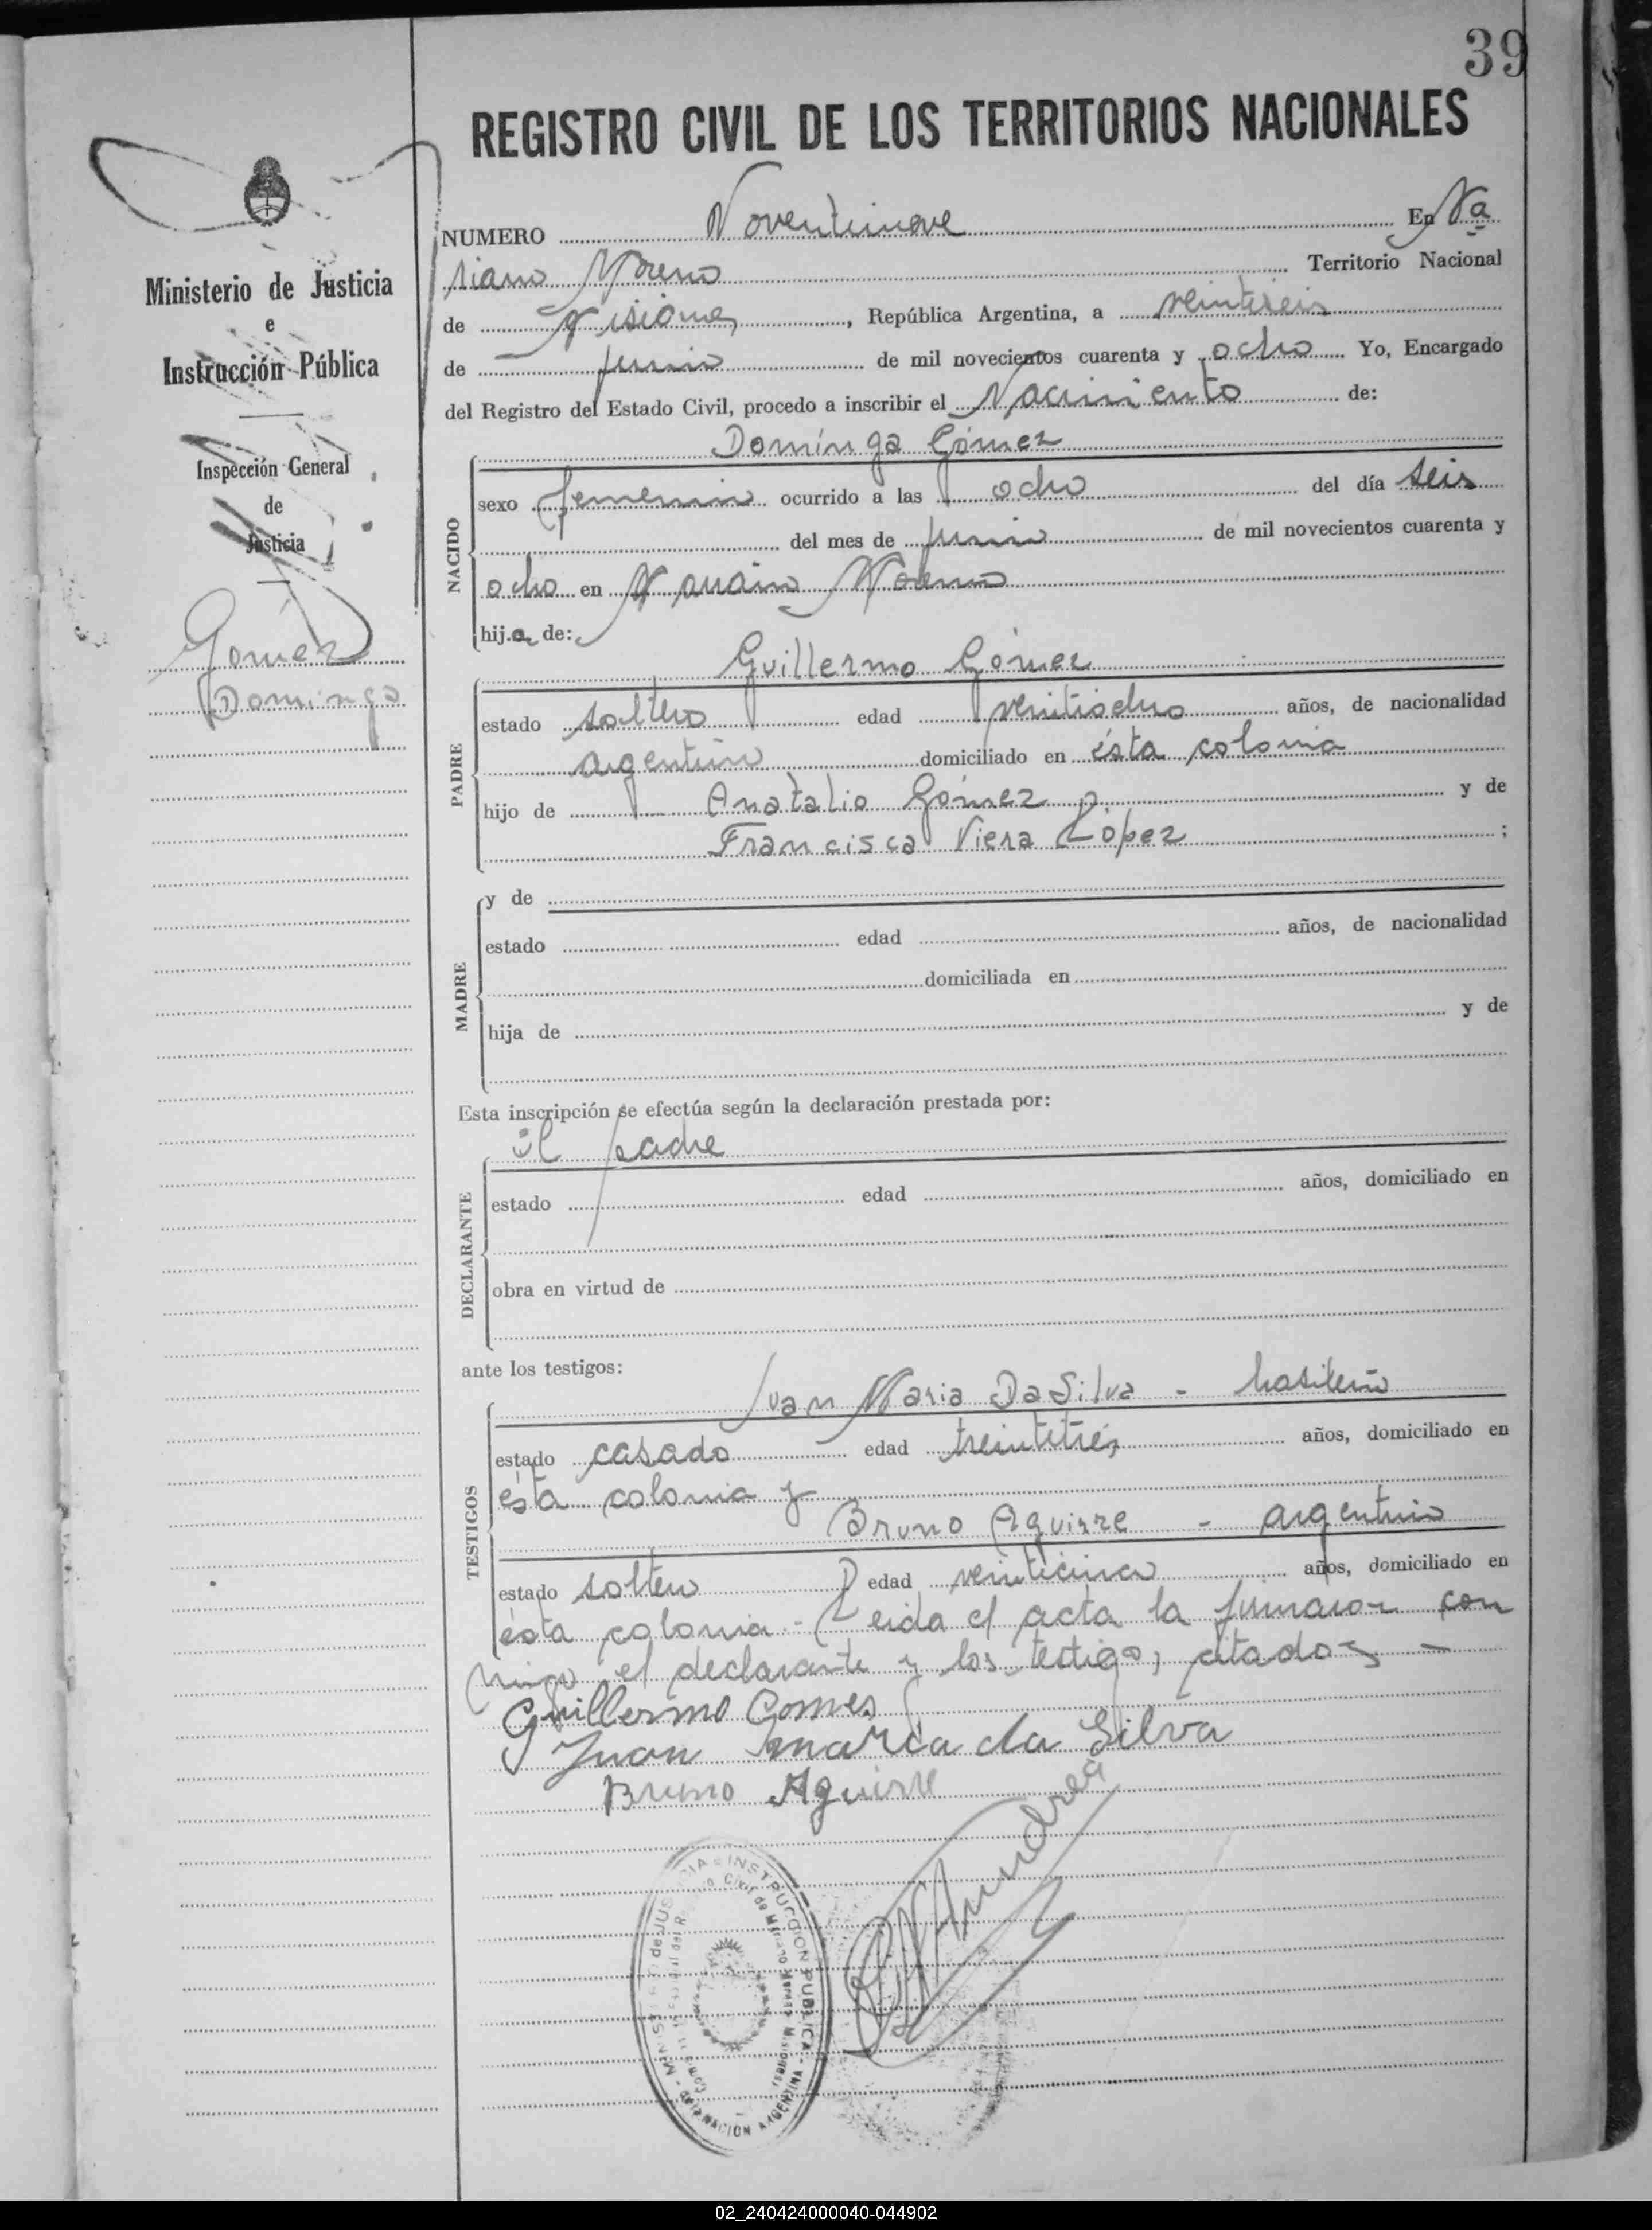 39
REGISTRO CIVIL DE LOS TERRITORIOS NACIONALES
Ministerio de Justicia
e
Instrucción Pública
Inspección General
de
Justicia
Gomez
Dominga
NUMERO Noventinueve En Ma
riano Moreno Territorio Nacional
de Misiones, República Argentina, a veintiseis
de junio de mil novecientos cuarenta y ocho Yo, Encargado
del Registro del Estado Civil, procedo a inscribir el Nacimiento de:
Domínga Gómez
NACIDO
sexo femenino ocurrido a las ocho del día seis
del mes de junio de mil novecientos cuarenta y
ocho en Mariano Moreno
hija de:
Guillermo Gómez
PADRE
estado soltero edad veintiocho años, de nacionalidad
argentino domiciliado en ésta colonia
hijo de Anatalio Gómez y de
Francisca Viera López ;
MADRE
y de
estado edad años, de nacionalidad
domiciliada en
hija de y de
Esta inscripción se efectúa según la declaración prestada por:
el padre
DECLARANTE
estado edad años, domiciliado en
obra en virtud de
ante los testigos:
Juan Maria Da Silva - brasileño
TESTIGOS
estado casado edad treintitrés años, domiciliado en
ésta colonia y
Bruno Aguirre - argentino
estado soltero edad veinticinco años, domiciliado en
ésta colonia. - Leida el acta la firmaron con
migo el declarante y los testigos citados -
Guillermo Gomes
Juan maria da Silva
Bruno Aguirre
MINISTERIO de JUSTICIA e INSTRUCCION PUBLICA - de la NACION ARGENTINA -
Civil de Mariano Moreno Misiones
02_240424000040-044902